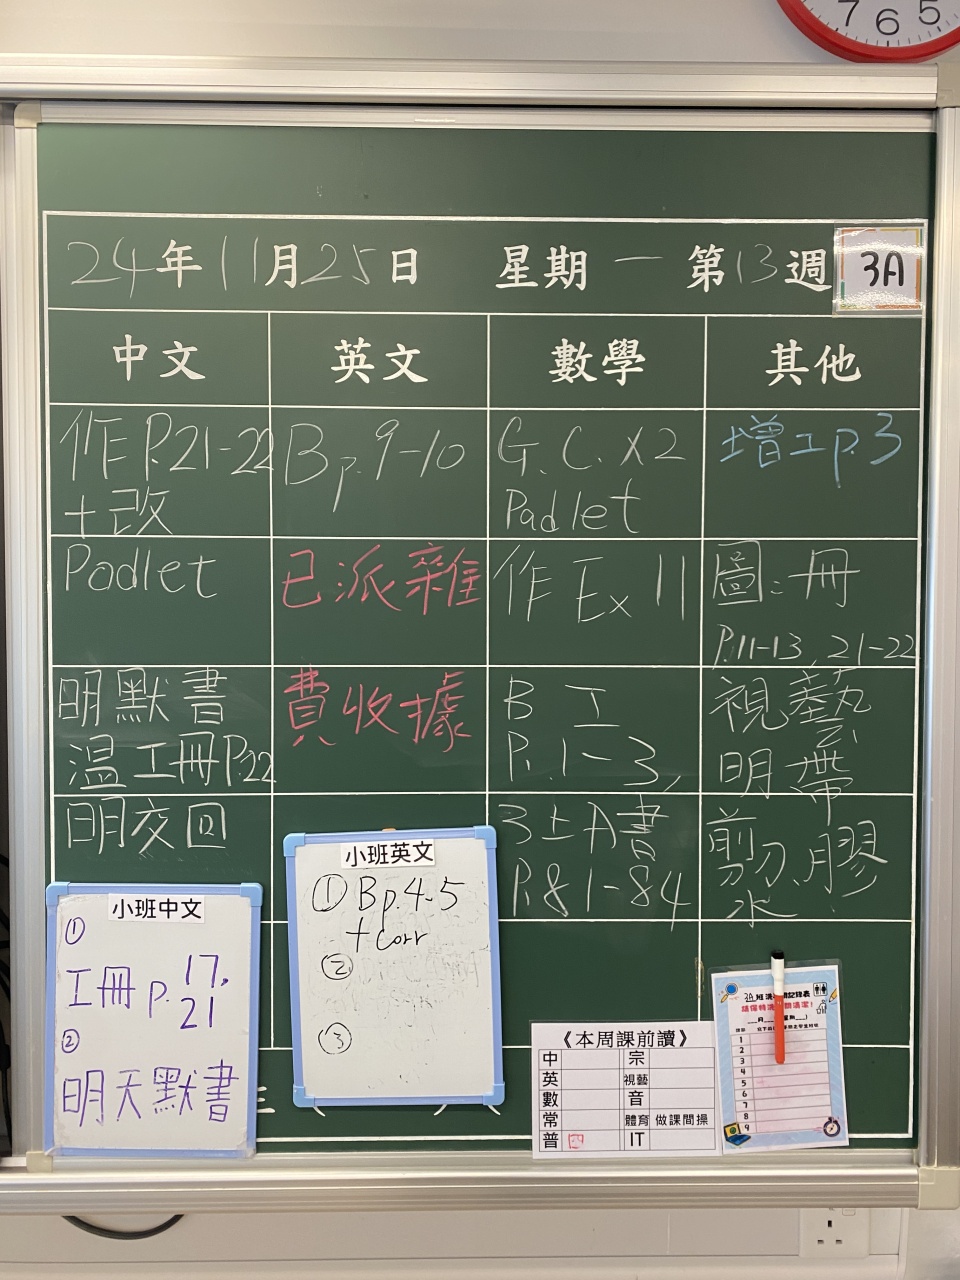 7 6 5
24年11月25日 星期一 第13週 3A
中文 英文 數學 其他
作P.21-22
+改
Padlet
明默書
溫工冊P.22
明交回
Bp.9-10
已派雜
費收據
G.C.x2
Padlet
作Ex 11
B工
P.1-3,
3上A書
P.81-84
增工p.3
圖:冊
P.11-13, 21-22
視藝
明帶
剪刀、膠
水
小班中文
①
工冊 p. 17,
21
②
明天默書
小班英文
① Bp.4-5
+Corr
②
③
《本周課前讀》
中 宗
英 視藝
數 音
常 體育 做課間操
普 回 IT
1
2
3
4
5
6
7
8
9